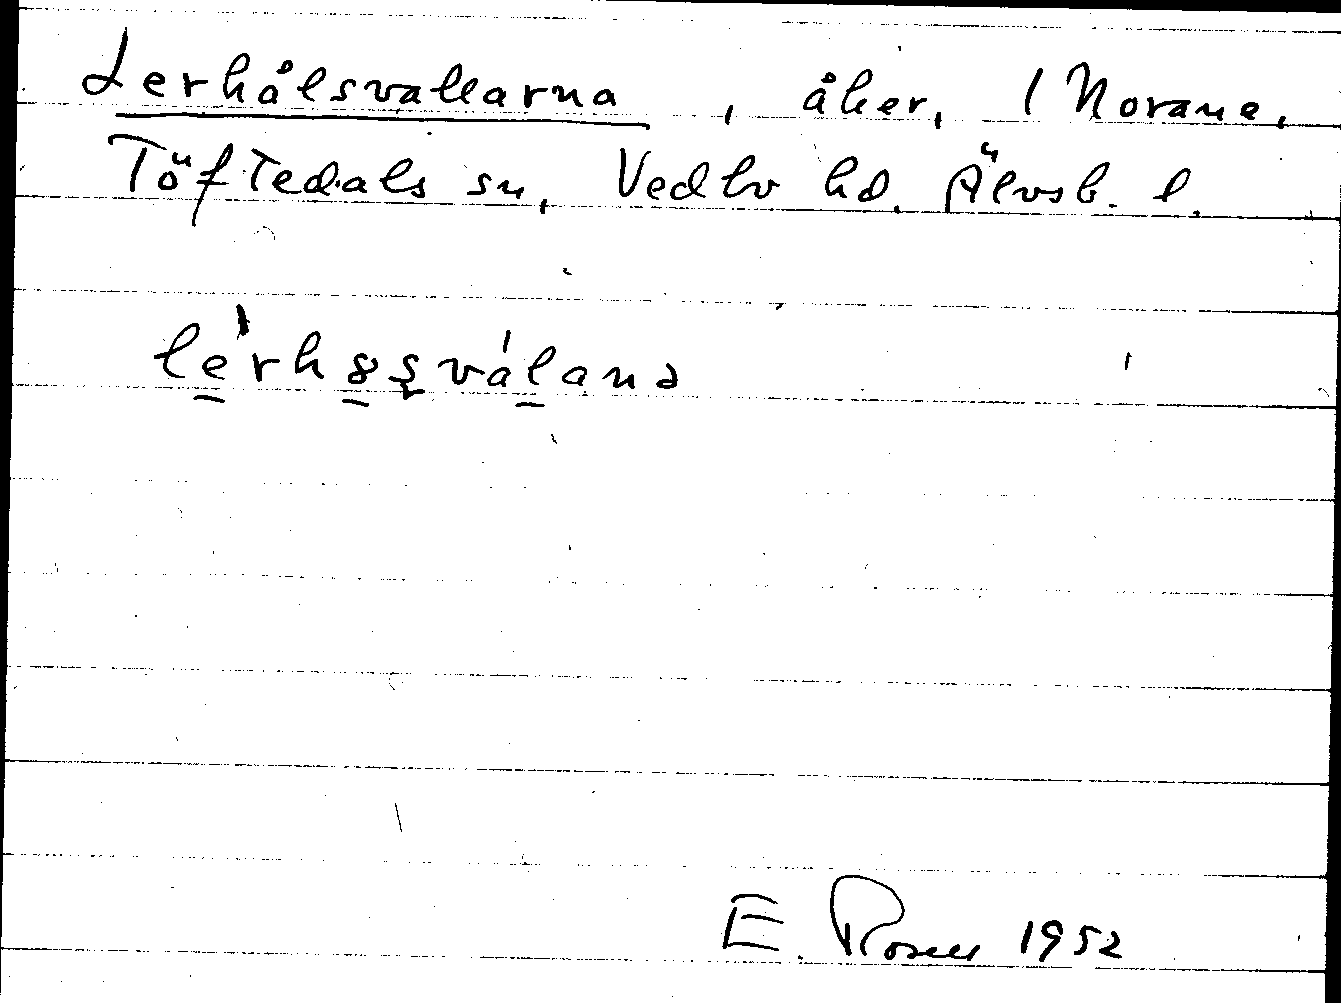 Lerhålsvallarna, åker, 1 Norane,
Töftedals sn, Vedbo hd. Älvsb. l.
E. Rosell 1952